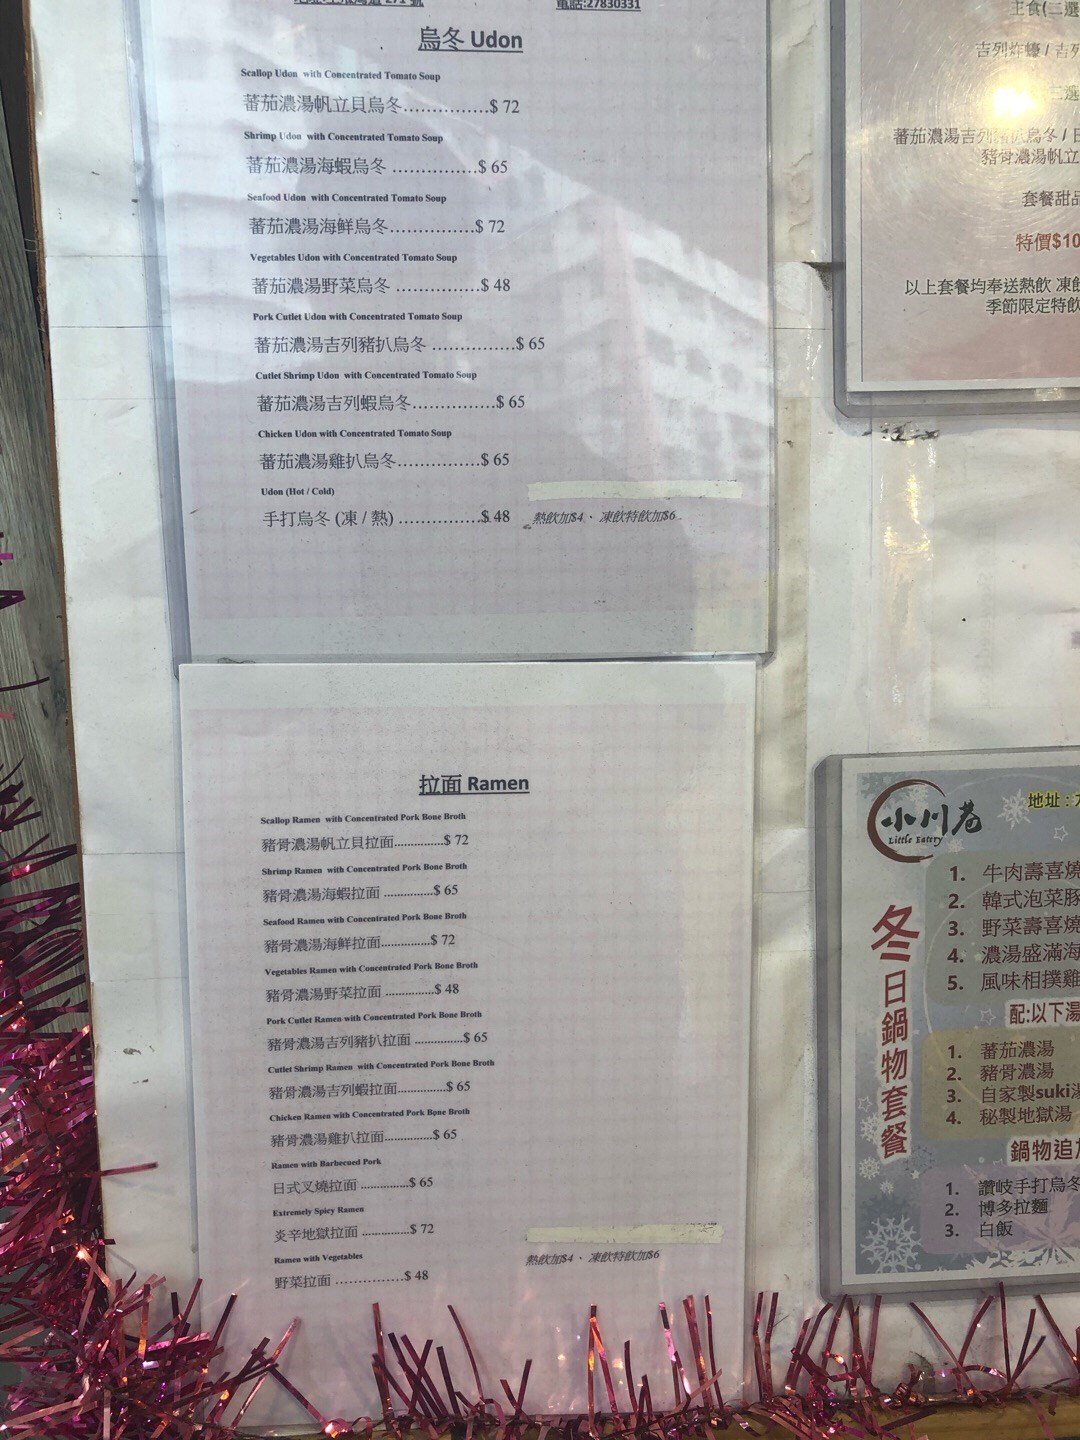 271 號
電話:27830331
烏冬 Udon
Scallop Udon with Concentrated Tomato Soup
蕃茄濃湯帆立貝烏冬...............$ 72
Shrimp Udon with Concentrated Tomato Soup
蕃茄濃湯海蝦烏冬 ...............$ 65
Seafood Udon with Concentrated Tomato Soup
蕃茄濃湯海鮮烏冬...............$ 72
Vegetables Udon with Concentrated Tomato Soup
蕃茄濃湯野菜烏冬 ...............$ 48
Pork Cutlet Udon with Concentrated Tomato Soup
蕃茄濃湯吉列豬扒烏冬 ...............$ 65
Cutlet Shrimp Udon with Concentrated Tomato Soup
蕃茄濃湯吉列蝦烏冬...............$ 65
Chicken Udon with Concentrated Tomato Soup
蕃茄濃湯雞扒烏冬...............$ 65
Udon (Hot / Cold)
手打烏冬 (凍 / 熱) ...............$ 48
熱飲加$4、 凍飲特飲加$6
拉面 Ramen
Scallop Ramen with Concentrated Pork Bone Broth
豬骨濃湯帆立貝拉面...............$ 72
Shrimp Ramen with Concentrated Pork Bone Broth
豬骨濃湯海蝦拉面 ...............$ 65
Seafood Ramen with Concentrated Pork Bone Broth
豬骨濃湯海鮮拉面...............$ 72
Vegetables Ramen with Concentrated Pork Bone Broth
豬骨濃湯野菜拉面 ...............$ 48
Pork Cutlet Ramen with Concentrated Pork Bone Broth
豬骨濃湯吉列豬扒拉面 ...............$ 65
Cutlet Shrimp Ramen with Concentrated Pork Bone Broth
豬骨濃湯吉列蝦拉面...............$ 65
Chicken Ramen with Concentrated Pork Bone Broth
豬骨濃湯雞扒拉面...............$ 65
Ramen with Barbecued Pork
日式叉燒拉面 ...............$ 65
Extremely Spicy Ramen
炎辛地獄拉面 ...............$ 72
Ramen with Vegetables
野菜拉面 ...............$ 48
熱飲加$4、 凍飲特飲加$6
主食(二選
吉列炸蠔 / 吉列
二選
蕃茄濃湯吉列豬扒烏冬 /
豬骨濃湯帆立
套餐甜品
特價$10
以上套餐均奉送熱飲 凍飲
季節限定特飲
小川巷
Little Eatery
地址 :
冬日鍋物套餐
1. 牛肉壽喜燒
2. 韓式泡菜豚
3. 野菜壽喜燒
4. 濃湯盛滿海
5. 風味相撲雞
配:以下湯
1. 蕃茄濃湯
2. 豬骨濃湯
3. 自家製suki湯
4. 秘製地獄湯
鍋物追加
1. 讚岐手打烏冬
2. 博多拉麵
3. 白飯